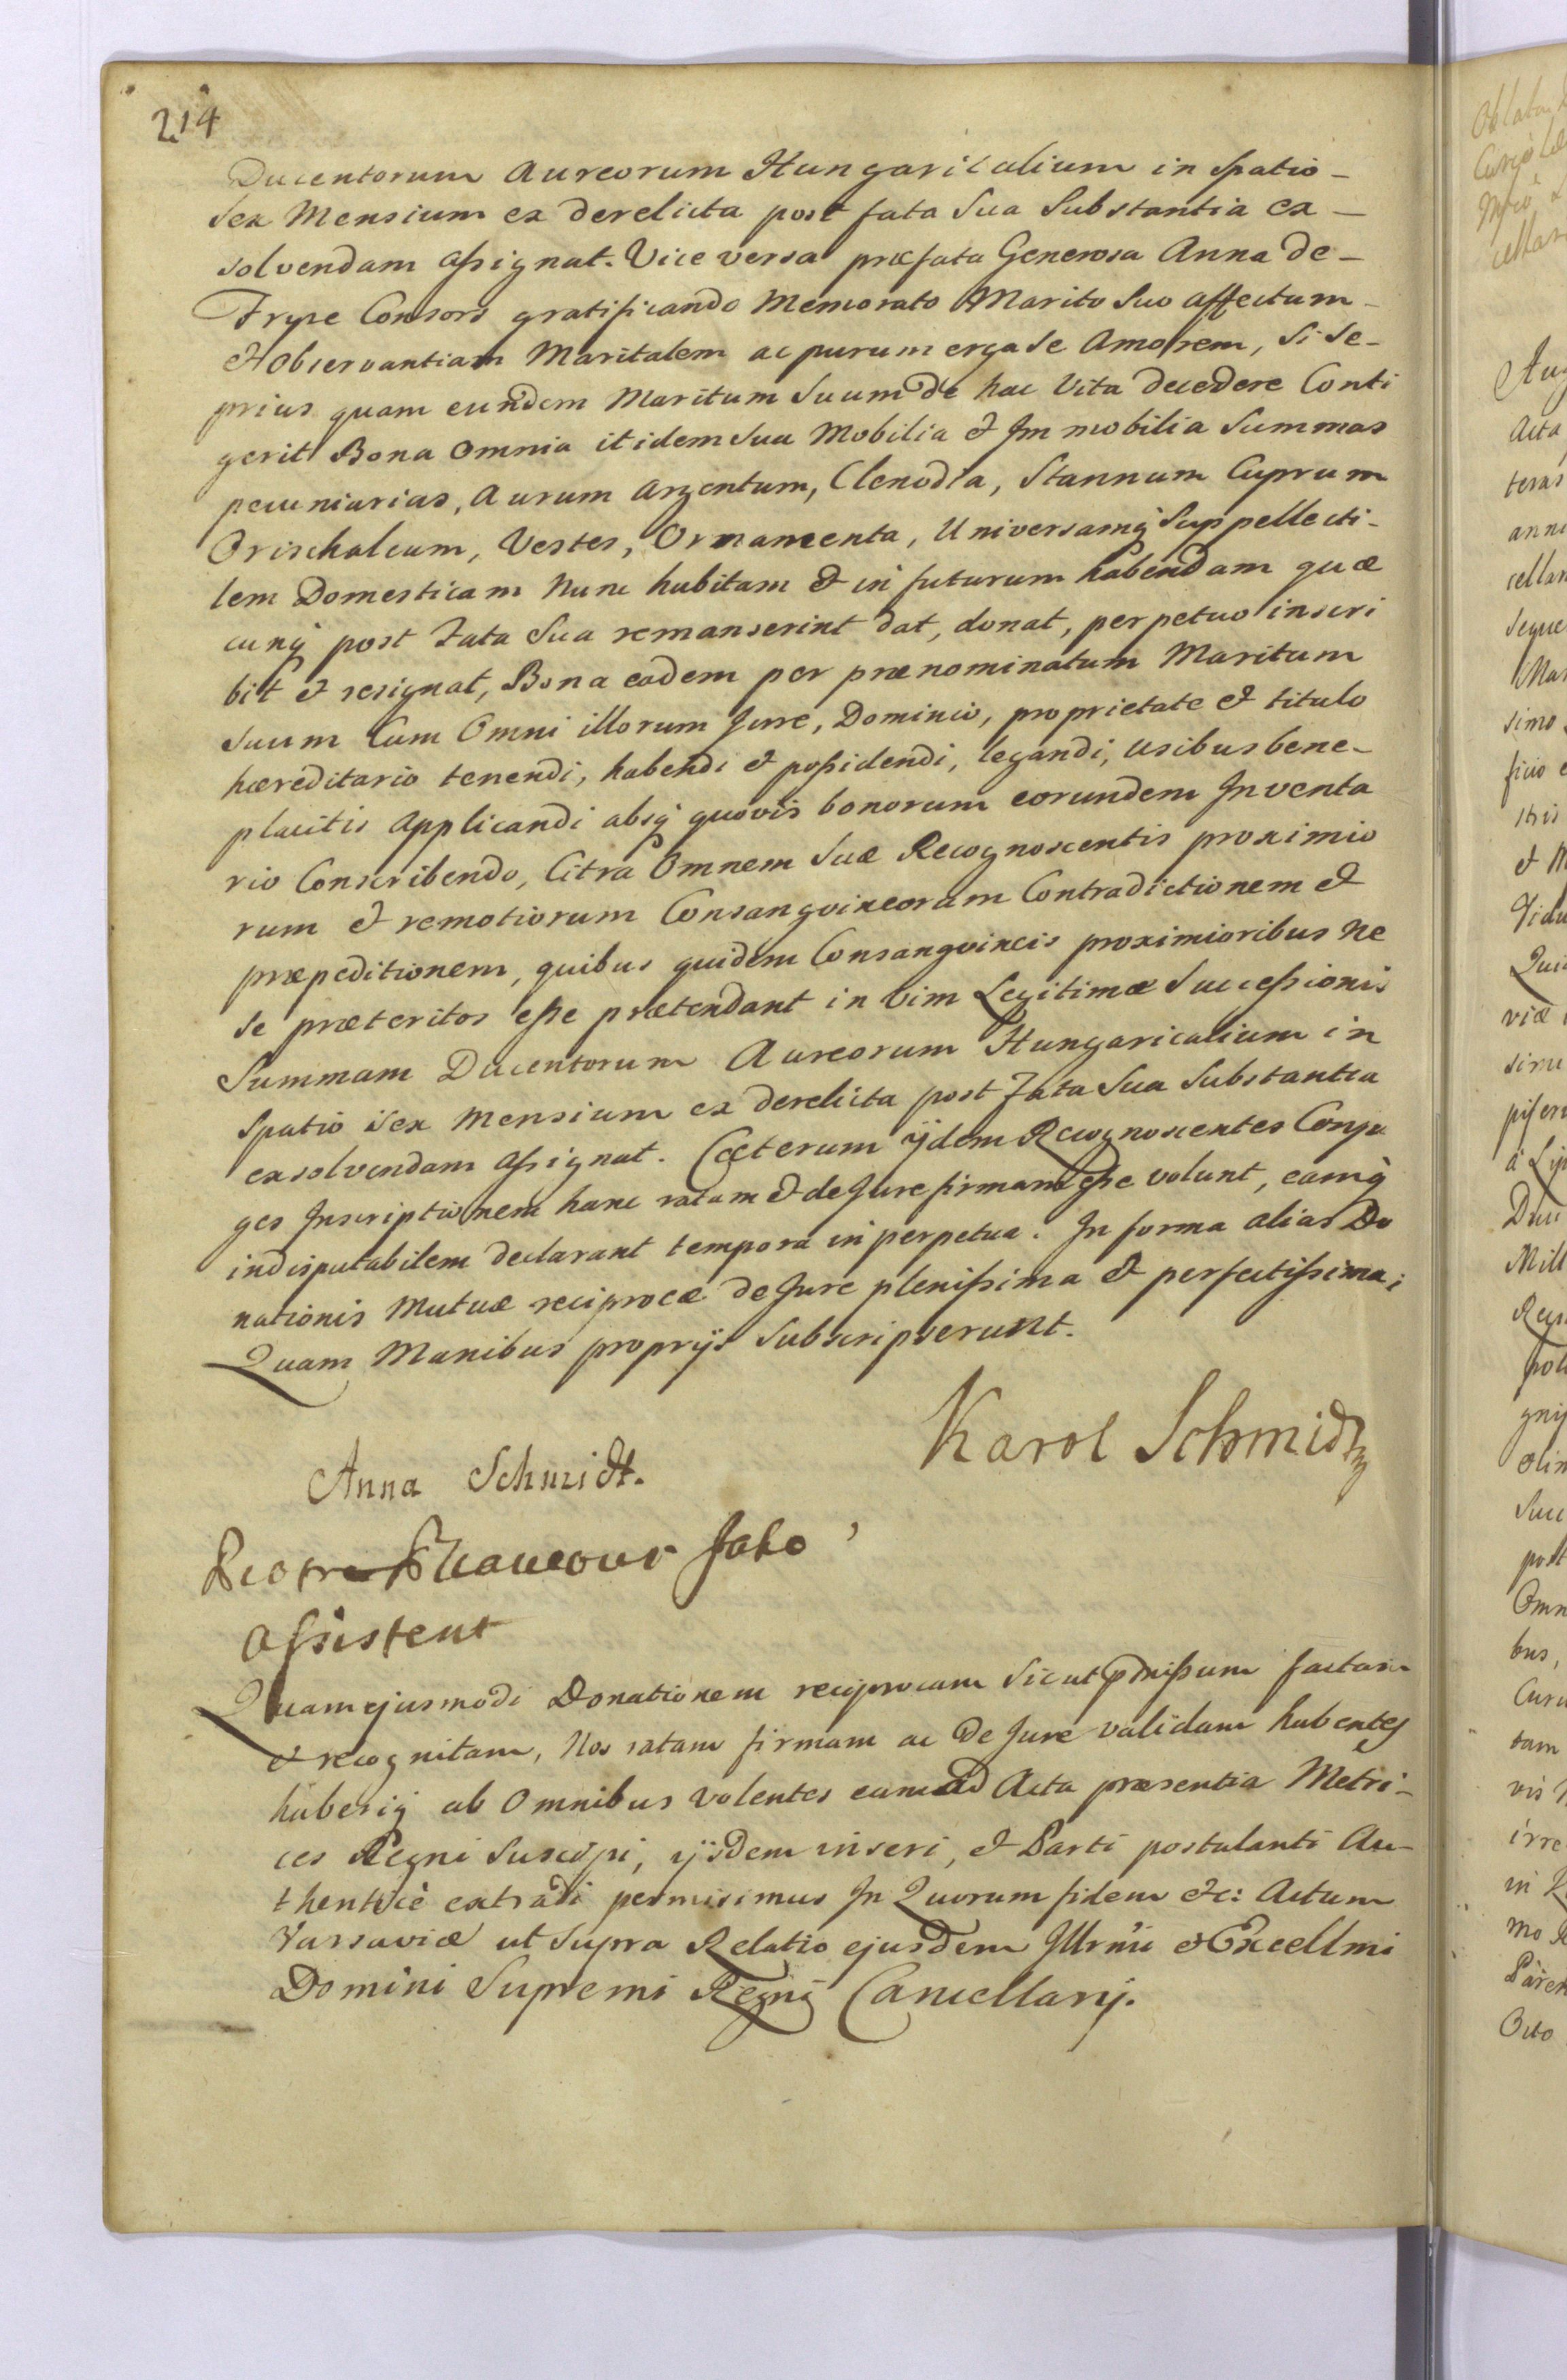 214
Ducentorum Aureorum Hungaricalium in Spatio –
Sex Mensium ex derelicta post fata Sua Substantia ex –
solvendam assignat. Vice versa præfata Generosa Anna de –
Frype Consors gratificando Memorato Marito Suo affectum –
et Observantiam Maritalem ac purum erga Se Amorem, Si Se –
prius quam eundem Maritum Suum de hac Vita decedere Conti
gerit Bona Omnia itidem Sua Mobilia & Immobilia Summas
pecuniarias, Aurum Argentum, Clenodia, Stannum Cuprum
Orischalcum, Vestes, Ornamenta, Universamq Suppellecti –
lem Domesticam Nunc habitam & in futurum habendam quæ
cunq post Fata Sua remanserint dat, donat, perpetuo inscri
bit & resignat, Bona eadem per prænominatum Maritum
Suum Cum Omni illorum Jure, Dominio, proprietate & titulo
hæreditario tenendi, habendi & possidendi, legandi, usibus bene –
placitis Applicandi absq quovis bonorum eorundem Inventa
rio Conscribendo, Citra Omnem Suæ Recognoscentis proximio
rum & remotiorum Consangvineorum Contradictionem &
præpeditionem, quibus quidem Consangvineis proximioribus Ne
Se præteritos esse prætendant in vim Legitimæ Successionis
Summam Ducentorum Aureorum Hungaricalium in
Spatio Sex Mensium ex derelicta post Fata Sua Substantia
exsolvendam Assignat. Cæterum ijdem Recognoscentes Conju
ges Inscriptionem hanc ratam & de Jure firmam esse volunt, eamq
indisputabilem declarant tempora in perpetua. In forma alias Do
nationis Mutuæ reciprocæ de Jure plenissima & perfectissima;
Quam Manibus proprijs Subscripserunt.
Karol Schmidt
Anna Schmidt.
Jako
assistent
Quam ejusmodi Donationem reciprocam Sicut pmissum factam
& recognitam, Nos ratam firmam ac De Jure validam habentes
haberiq ab Omnibus volentes eam ad Acta præsentia Metri –
ces Regni Suscipi, ijsdem inseri, & Parti postulanti Au –
thenticè extradi permisimus In Quorum fidem &c: Actum
Varsaviæ ut Supra Relatio ejusdem Illrmi & Excellmi
Domini Supremi Regni Cancellarij.